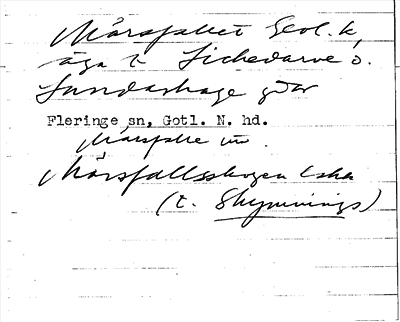 Mårsfallet Geol. k,
äga t Sichedarve o.
Sundashage gdar
Fleringe sn, Gotl. N. hd.
Mårsfalle
Mårsfallsskogen Eska
(t. Skymnings)